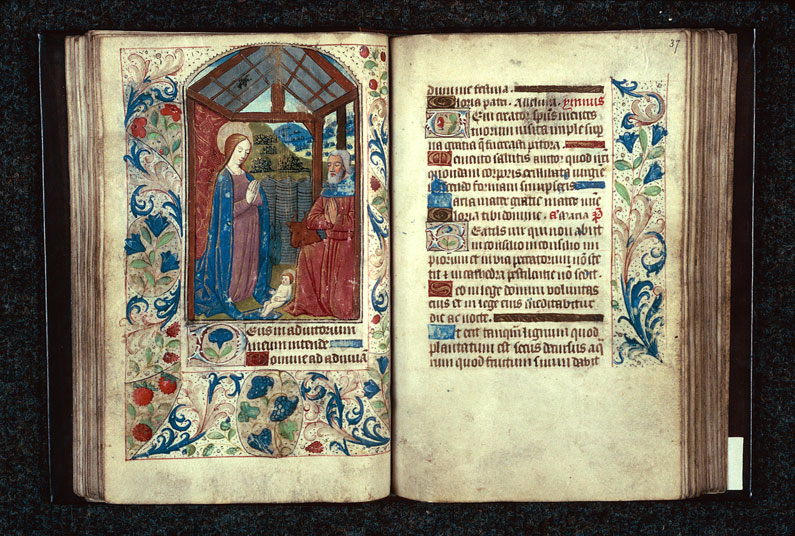 Deus in adiutorium
meum intende
Domine ad adiuuā
37
dum me festina.
Gloria patri. alleluia. ymnus
Veni creator spūs mentes
tuorum visita imple sup
na gratia q̄ tu creasti pectora
Memento salutis auctor quod nr̄i
quondam corporis ex illibata virgīe
nascendo formam sumpseris
Maria mater gratie mater mīe
Gloria tibi domine. maria p̄
Beatus vir qui non abiit
in consilio in consilio im
piorum et in via peccatorum nō ste
tit & in cathedra pestilentie nō sedit
Sed in lege domini voluntas
eius et in lege eius meditabitur
die ac nocte.
Et erit tanq̄m lignum quod
plantatum est secus decursus aq̄
rum quod fructum suum dabit